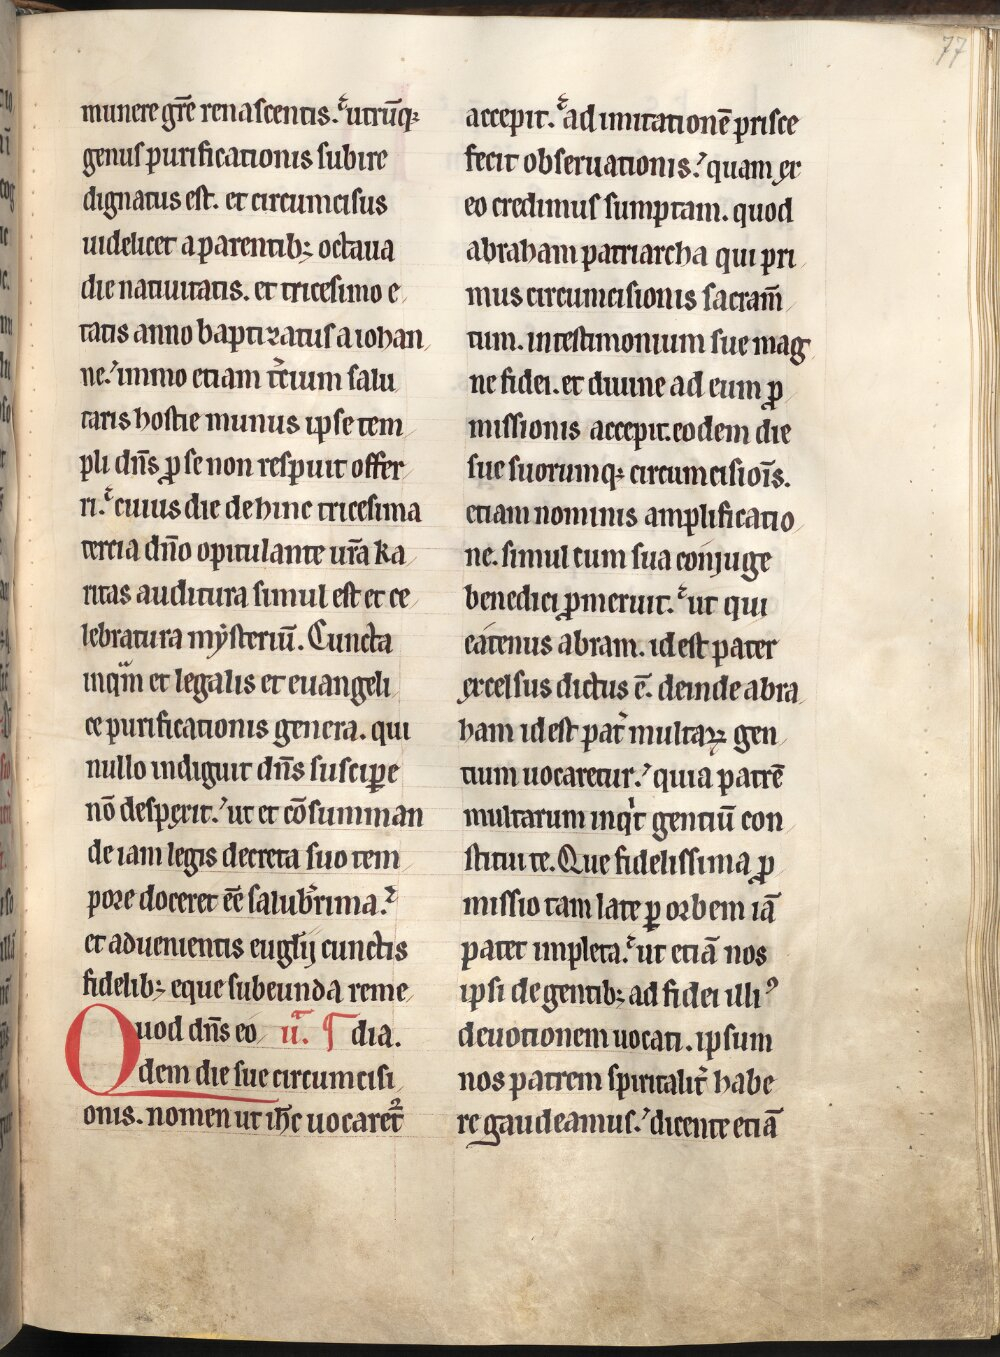 77
munere gr̄e renascentis. utrūq;
genus purificationis subire
dignatus est. et circumcisus
uidelicet a parentib; octaua
die natiuitatis. et tricesimo e
tatis anno baptizatus a iohan
ne. immo etiam t̄cium salu
taris hostie munus ipse tem
pli dn̄s ꝓ se non respuit offer
ri. cuius die dehinc tricesima
tercia dn̄o opitulante ur̄a ka
ritas auditura simul est et ce
lebratura mẏsteriū. Cuncta
inqm̄ et legalis et euangeli
ce purificationis genera. qui
nullo indiguit dn̄s suscip̲e
nō despexit. ut et cōsumman
de iam legis decreta suo tem
pore doceret ēē salub̄rima.
et aduenientis eugl̄ij cunctis
fidelib; eque subeunda reme
Quod dn̄s eo ū. ¶ dia.
dem die sue circumcisi
onis. nomen ut ih̄c uocaret᷑
accepit. ad imitationē prisce
fecit obseruationis. quam ex
eo credimus sumptam. quod
abraham patriarcha qui pri
mus circumcisionis sacram̄
tum. in testimonium sue mag
ne fidei. et diuine ad eum ꝓ
missionis accepit. eodem die
sue suorumq; circumcisiōis.
etiam nominis amplificatio
ne. simul cum sua conjuge
benedici ꝓmeruit. ut qui
eatenus abram. id est pater
excelsus dictus ē. deinde abra
ham id est pat̄ multaꝝ gen
tium uocaretur. quia patrē
multarum inqͥt gentiū con
stitui te. Que fidelissima ꝓ
missio tam late ꝑ orbem iā
patet impleta. ut etiā nos
ipsi de gentib; ad fidei illiꝰ
deuotionem uocati. ipsum
nos patrem spiritalit̄ habe
re gaudeamus. dicente etiā